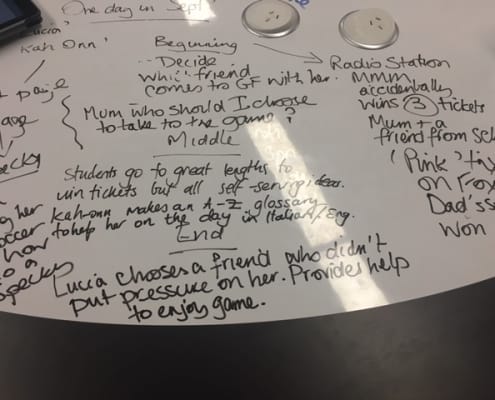 One day in Sept
Lucia'
Kah Onn'
Beginning
Decide
which friend
comes to GF with her.
Mum who should I choose
to take to the game?
Middle
Students go to great lengths to
win tickets but all self-serving ideas.
Kah-onn makes an A-Z glossary
to help her on the day in Italian/Eng.
End
Lucia chooses a friend who didn't
put pressure on her. Provides help
to enjoy game.
Radio Station
MMM
accidentally
wins 3 tickets
Mum + a
friend from
'Pink'
on
Dad's
won
her
how
to a
specky